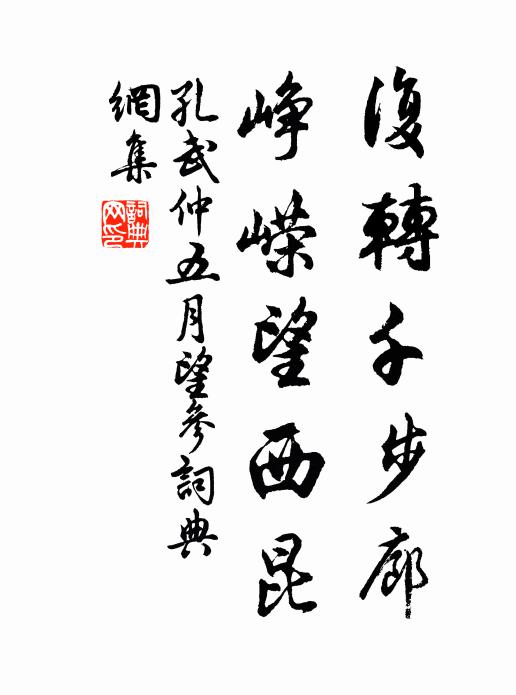 復轉千步廊
崢嶸望西昆
孔武仲五月望參詞典
網集
詞典
网印